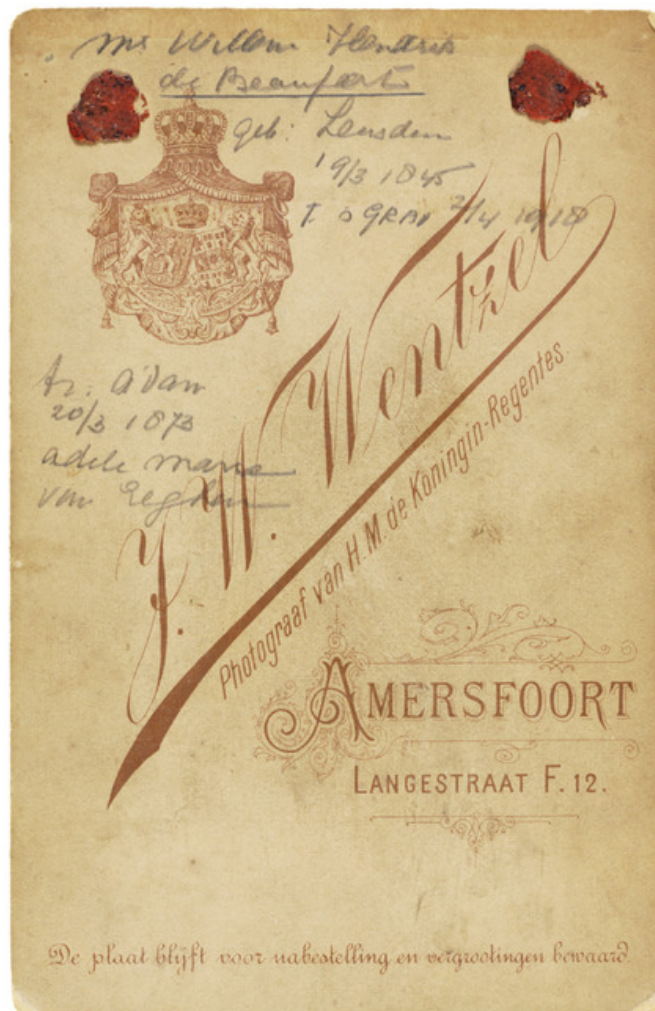 Mr Willem Hendrik
de Beaufort
geb: Leusden
19/3 1845
T. sGRAV 2/4 1918
tr. A'dam
20/3 1873
adele marie
van Eeghen
J. W. Wentzel
Photograaf van H. M. de Koningin-Regentes.
AMERSFOORT
LANGESTRAAT F. 12.
De plaat blijft voor nabestelling en vergrootingen bewaard.